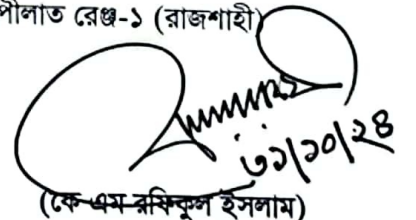 পৌলাত রেঞ্জ-১ (রাজশাহী)
৩১/১০/২৪
(কে এম রফিকুল ইসলাম)